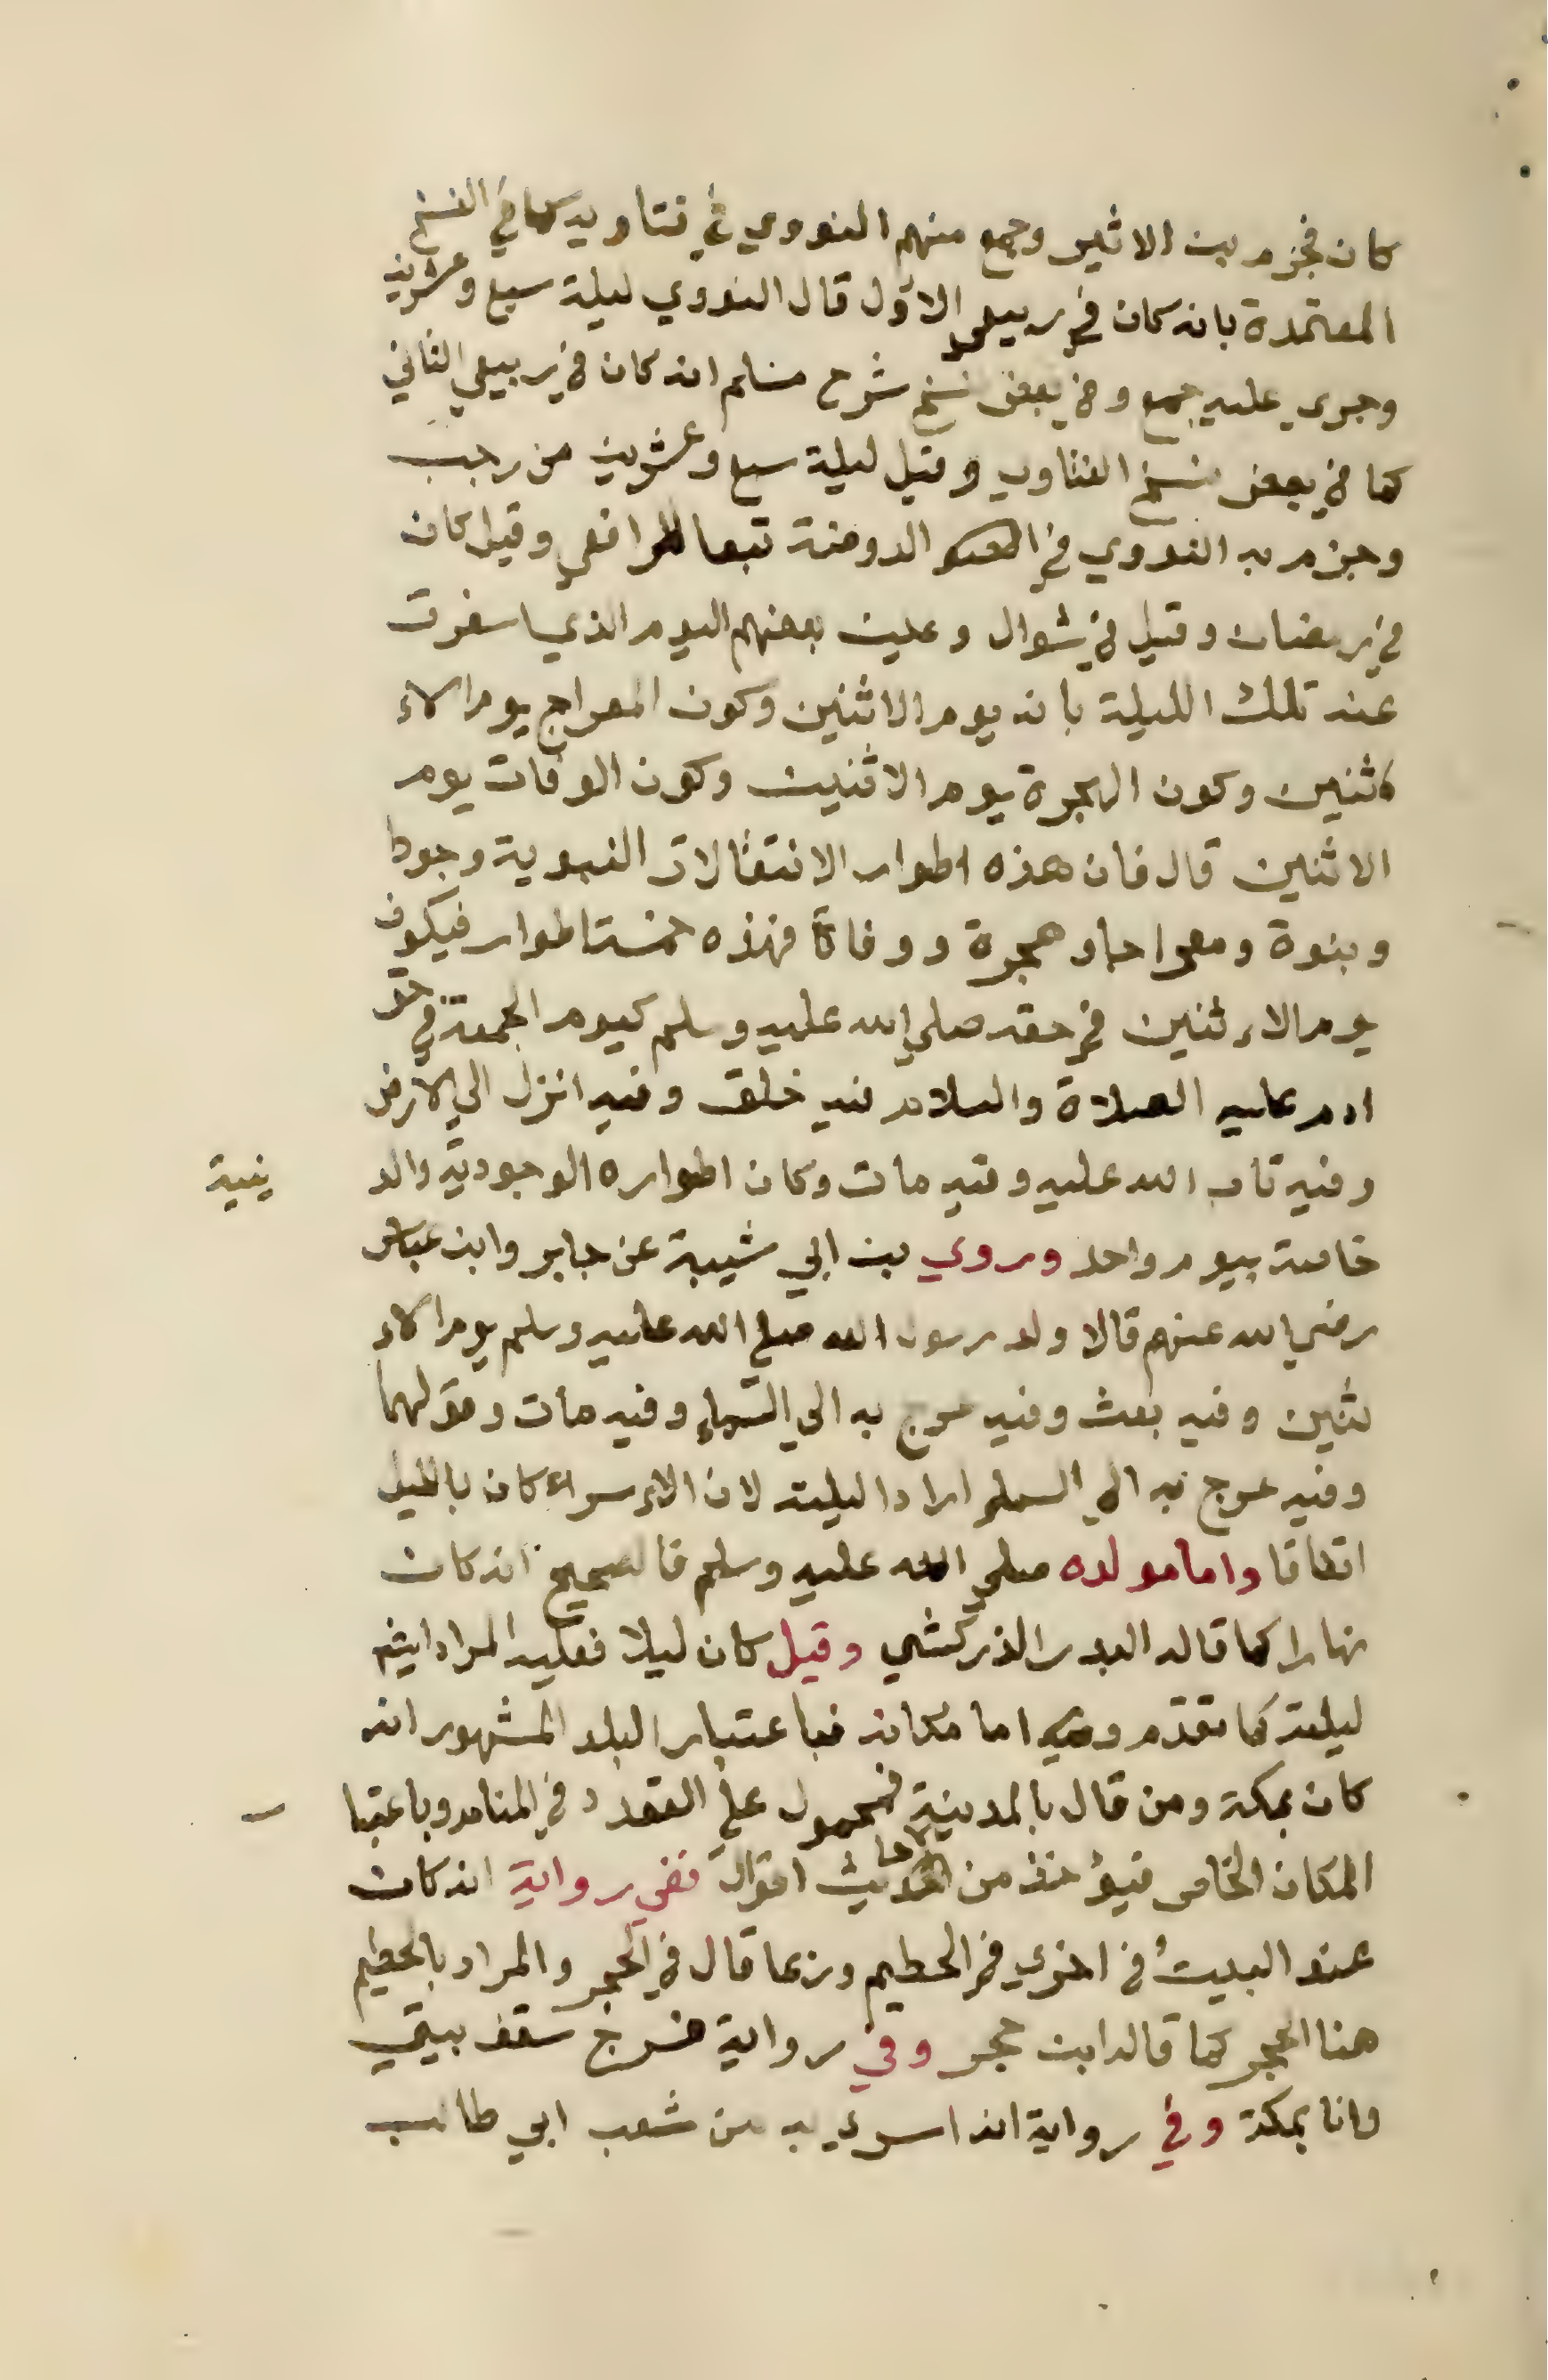 كان فجزم بن الاثير وجمع منهم النووي في فتاويه كما في النسخ
المعتمدة بانه كان في ربيع الاول قال النووي ليلة سبع وعشرين
وجرى عليه جمع وفي بعض نسخ شرح مسلم انه كان في ربيع الثاني
كما في بعض نسخ الفتاوي وقيل ليلة سبع وعشرين من رجب
وجزم به النووي في الروضة تبعا للرافعي وقيل كان
في رمضان وقيل في شوال وعين بعضهم اليوم الذي اسفرت
عنه تلك الليلة بانه يوم الاثنين وكون المعراج يوم الاء
كاثنين وكون الهجرة يوم الاثنين وكون الوفات يوم
الاثنين قال فان هذه اطوار الانتقالات النبوية وجودا
وبنوة ومعراجا وهجرة ووفاة فهذه خمستاطوار فيكون
يوم الاء ثنين في حقه صلي الله عليه وسلم كيوم الجمعة في حق
ادم عليه الصلاة والسلام فيه خلق وفيه انزل الي الارض
وفيه تاب الله عليه وفيه مات وكان اطواره الوجودية والد
ينية
خاصة بيوم واحد وروي بن ابي شيبة عن جابر وابن عباس
رضي الله عنهم قالا ولد رسول الله صلي الله عليه وسلم يوم الاء
ثنين وفيه بعث وفيه عرج به الي السماء وفيه مات وقولهما
وفيه عرج به الي السماء ارادا ليلته لان الاء سراء كان بالليل
اتفاقا واما مولده صلي الله عليه وسلم فالصحيح انه كان
نهارا كما قاله البدر الزركشي وقيل كان ليلا فعليه المراد ايضم
ليلته كما تقدم واما مكانه فباعتبار البلد المشهور انه
كان بمكة ومن قال بالمدينة فمحمول علي التعدد في المنام وباعتبا
المكان الخاص فيؤخذ من الاحاديث اقوال ففي رواية انه كان
عند البيت في اخري في الحطيم وربما قال في الحجر والمراد بالحطيم
هنا الحجر كما قاله ابن حجر وفي رواية فرج سقف بيتي
وانا بمكة وفي رواية انه اسري به من شعب ابي طالب